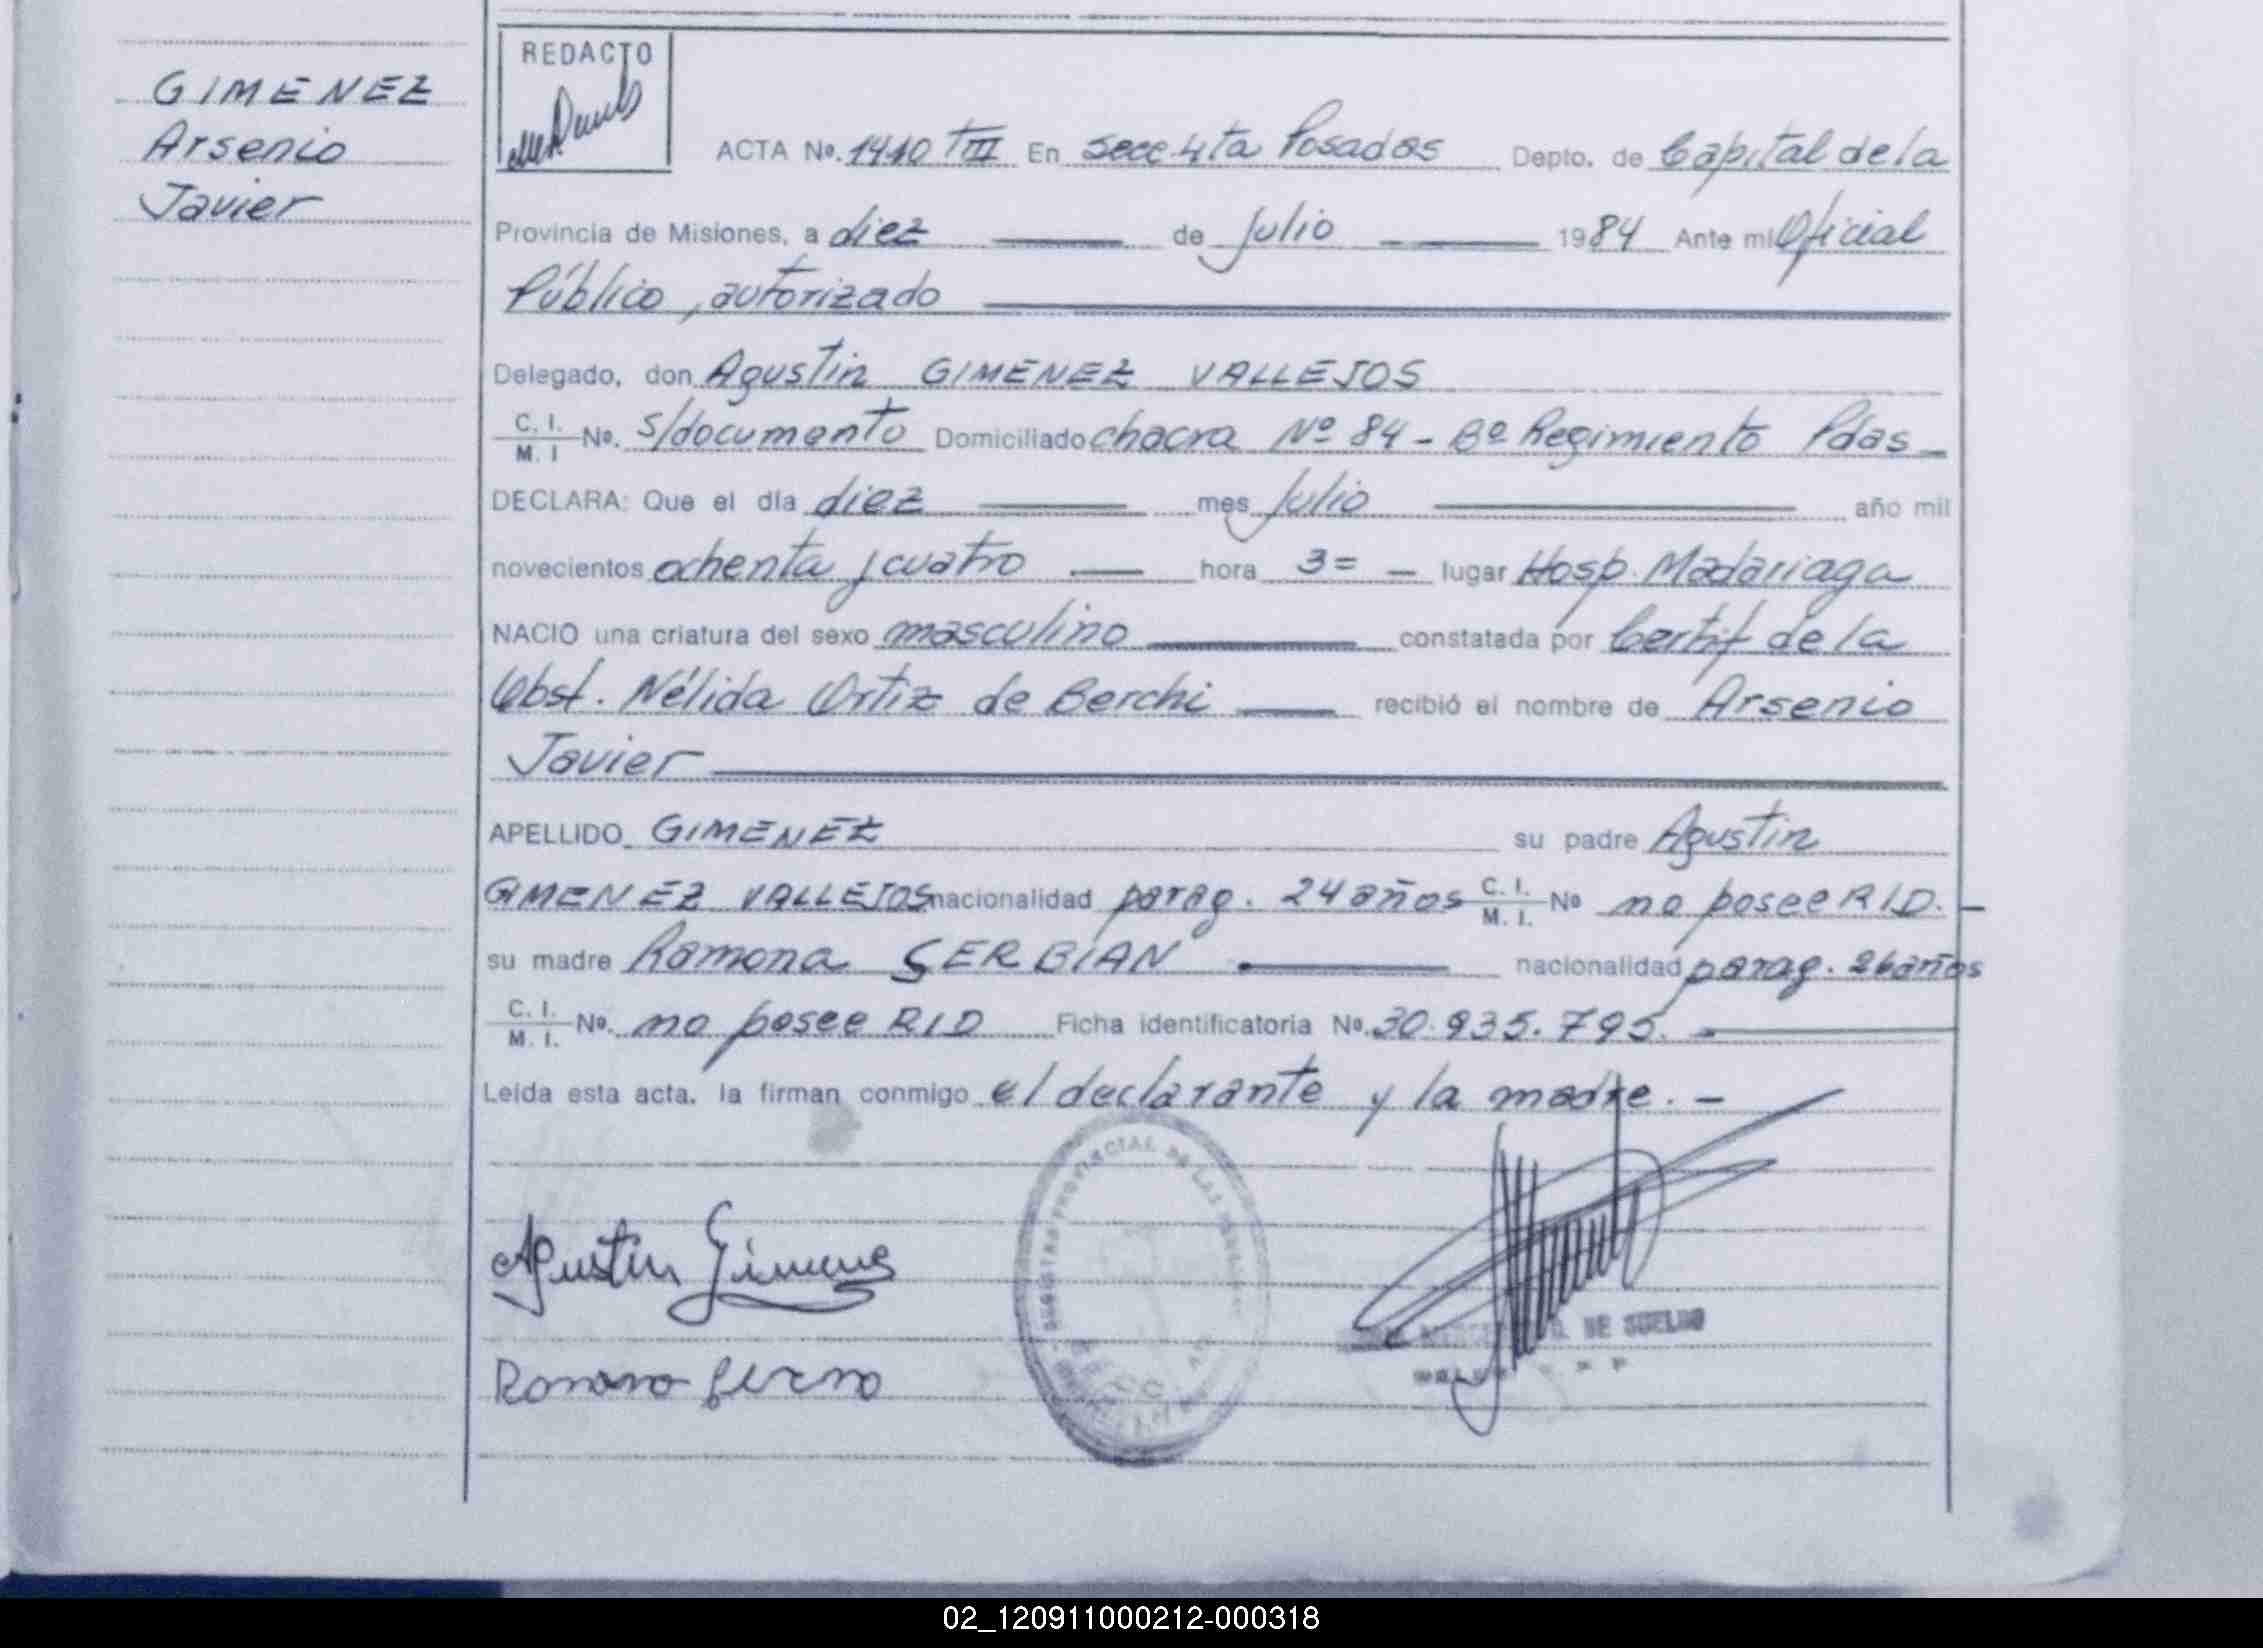 GIMENEZ
Arsenio
Javier
REDACTO
ACTA Nº. 1410 TIII En Secc. 4ta Posadas Depto. de Capital de la
Provincia de Misiones, a diez de Julio 1984 Ante mi Oficial
Público, autorizado
Delegado, don Agustin GIMENEZ VALLEJOS
C. I. M. I Nº. s/documento Domiciliado chacra Nº 84 - Bº Regimiento Pdas -
DECLARA: Que el día diez mes Julio año mil
novecientos ochenta y cuatro hora 3= - lugar Hosp. Madariaga
NACIO una criatura del sexo masculino constatada por Certif de la
Obst. Nélida Ortiz de Berchi recibió el nombre de Arsenio
Javier
APELLIDO GIMENEZ su padre Agustin
GIMENEZ VALLEJOS nacionalidad parag. 24 años C. I. M. I. Nº no posee RID. -
su madre Ramona SERBIAN nacionalidad parag. 26 años
C. I. M. I. Nº. no posee RID Ficha identificatoria Nº. 30.935.795. -
Leída esta acta, la firman conmigo el declarante y la madre. -
Agustin Gimenes
Ramona
REGISTRO PROVINCIAL DE LAS
DE SUELDO
02_120911000212-000318